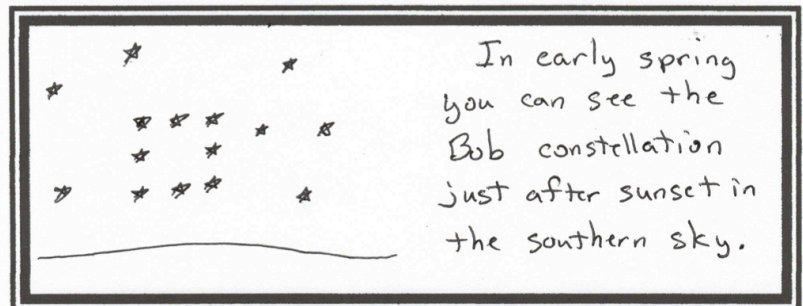 In early spring
you can see the
Bob constellation
just after sunset in
the southern sky.